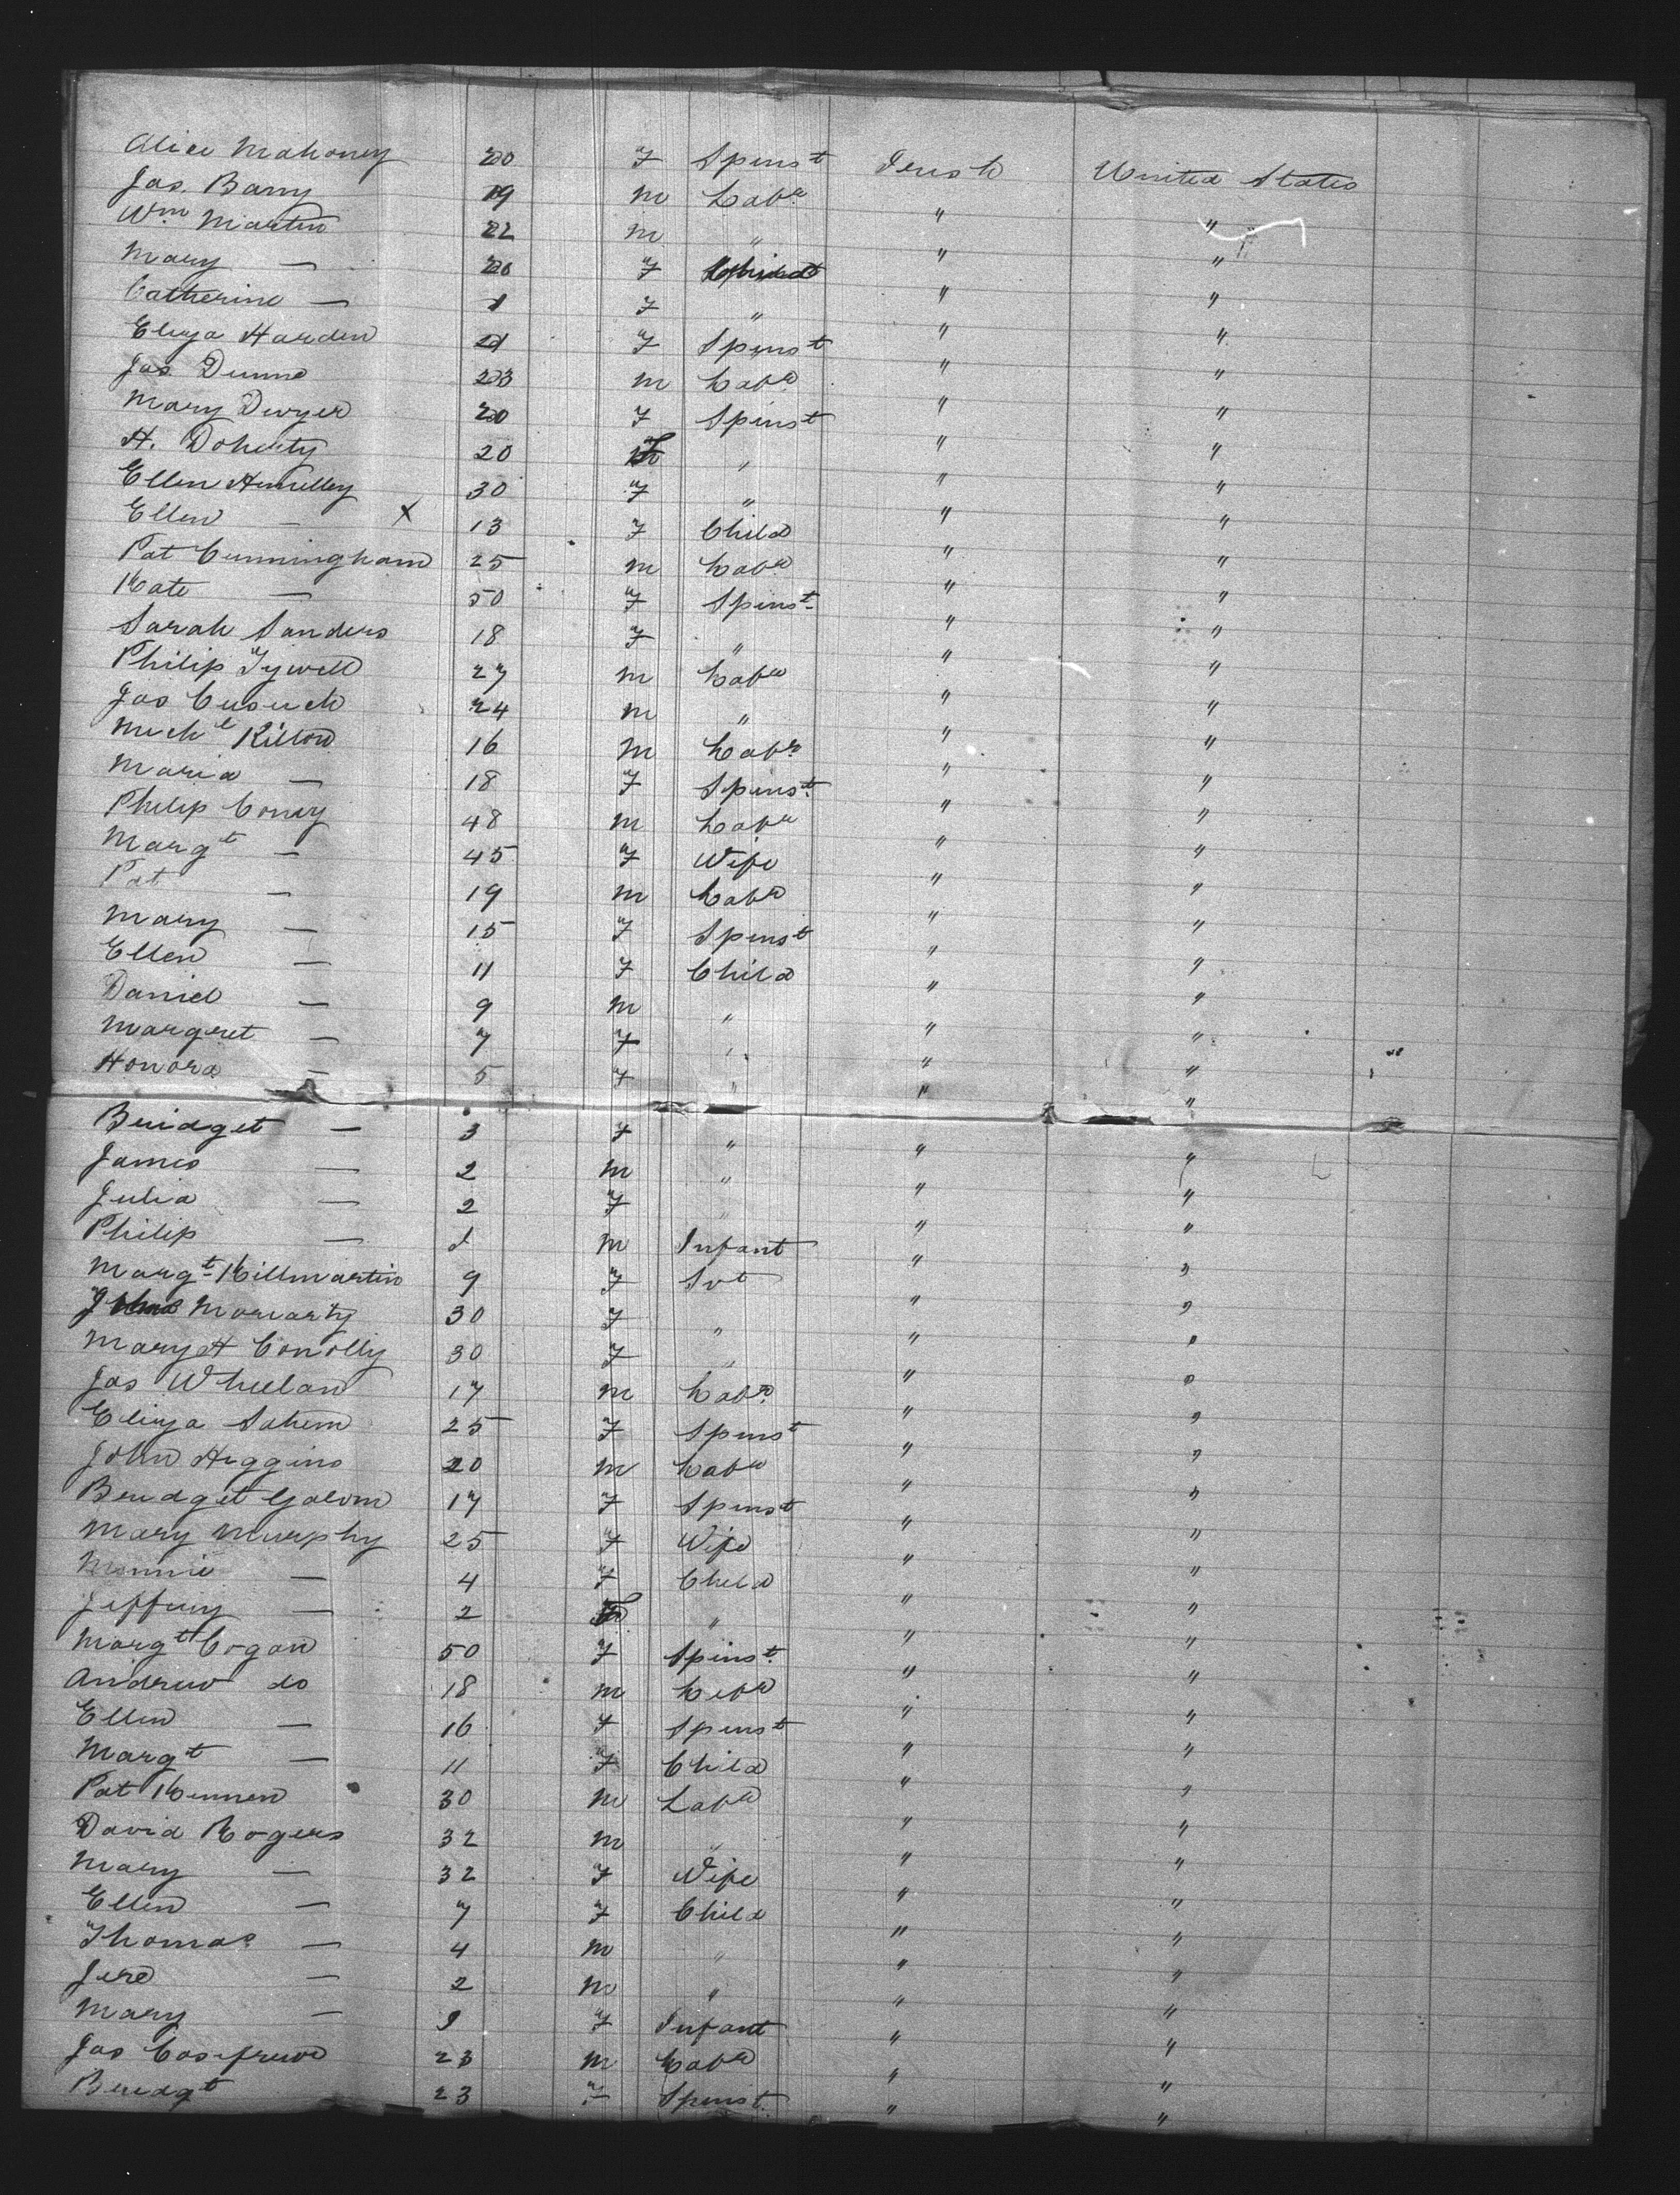 Alice Mahoney 20 F Spinst Irish United States
Jas. Barry 19 M Labr " "
Wm Martin 22 M " " "
Mary — 20 F " "
Catherine — 1 F " " "
Eliza Harden 21 F Spinst " "
Jas Dunne 23 M Labr " "
Mary Dwyer 20 F Spinst " "
H. Doherty 20 F " " "
Ellen 30 F " " "
Ellen — x 13 F Child " "
Pat Cunningham 25 M Labr " "
Kate — 50 F Spinst. " "
Sarah Sanders 18 F " " "
Philip 27 M Labr " "
Jas Cusick 24 M " " "
Michl 16 M Labr " "
Maria — 18 F Spinst. " "
Philip Coney 48 M Labr " "
Margt — 45 F Wife " "
Pat — 19 M Labr " "
Mary — 15 F Spinst " "
Ellen — 11 F Child " "
Daniel — 9 M " " "
Margret — 7 F " " "
Honora — 5 F " " "
Bridget — 3 F " " "
James — 2 M " " "
Julia — 2 F " " "
Philip — 1 M Infant " "
Margt Killmartin 9 F Svt " "
Moriarty 30 F " " "
Mary A Conolly 30 F " " "
Jas Wheelan 17 M Labr " "
Eliza 25 F Spinst " "
John Higgins 20 M Labr " "
Bridget Galvin 17 F Spinst " "
Mary Murphy 25 F Wife " "
Minnie — 4 F Child " "
— 2 F " " "
Margt Cogan 50 F Spinst. " "
Andrew do 18 M Labr " "
Ellen — 16 F Spinst " "
Margt — 11 F Child " "
Pat 30 M Labr " "
David Rogers 32 M " " "
Mary — 32 F Wife " "
Ellen — 7 F Child " "
Thomas — 4 M " " "
Jere — 2 M " " "
Mary — F Infant " "
Jas 23 M Labr " "
Bridgt 23 F Spinst. " "